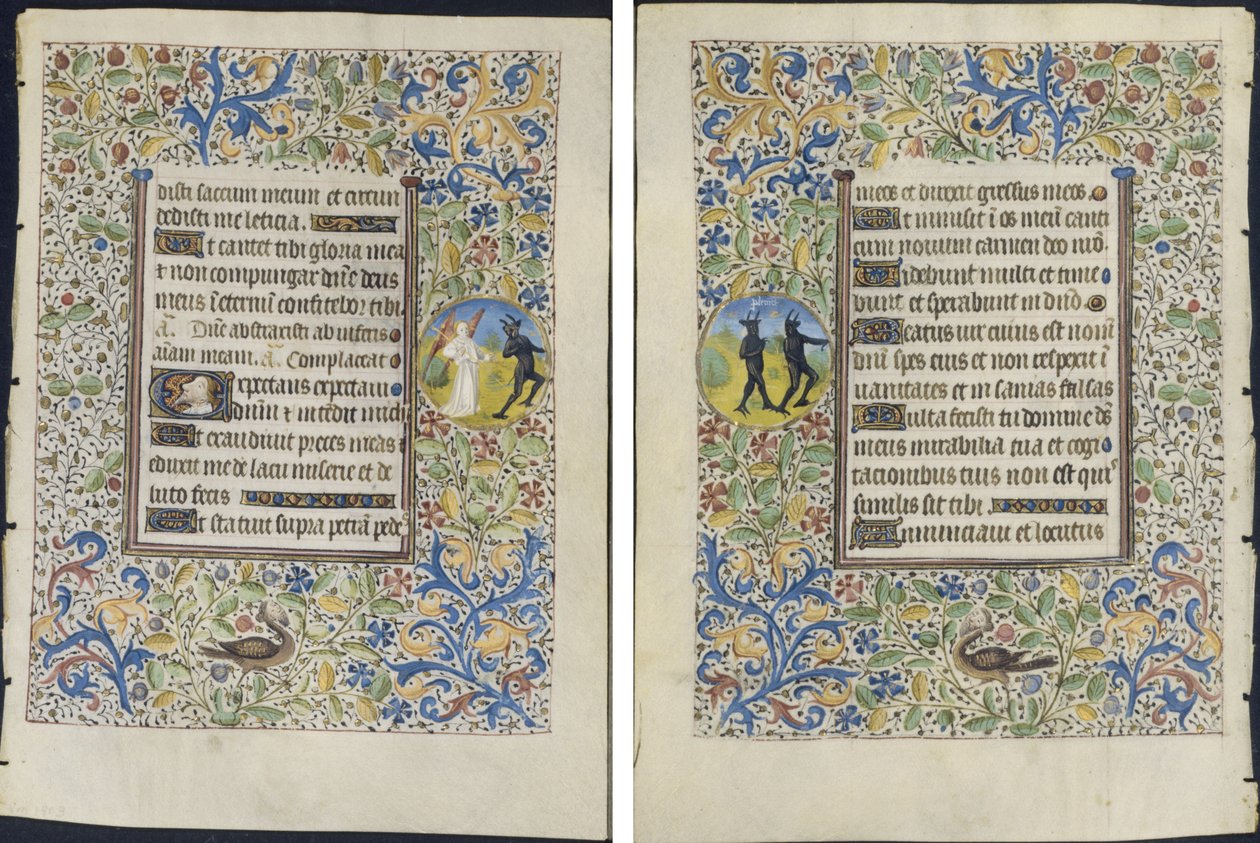 disti saccum meum et circun
dedisti me leticia.
Et cantet tibi gloria mea
et non compungar dñe deus
meus ī eternum confitebor tibi.
A. Dñe abstraxisti ab inferis
aīam meam. A. Complaceat
Expectans expectavi
dominū et intēdit michi
Et exaudivit preces meas
eduxit me de lacu miserie et de
luto fecis
Et statuit supra petrā pedes
meos et direxit gressus meos.
Et inmisit ī os meū canti
cum novum carmen deo nrō.
Videbunt multi et time
bunt et sperabunt in dnō
Beatus vir cuius est nomē
dnī spes eius et non respexit ī
vanitates et in sanias falsas
Multa fecisti tu domine ds̄
meus mirabilia tua et cogi
tacionibus tuis non est qui
similis sit tibi
Annunciavi et locutus